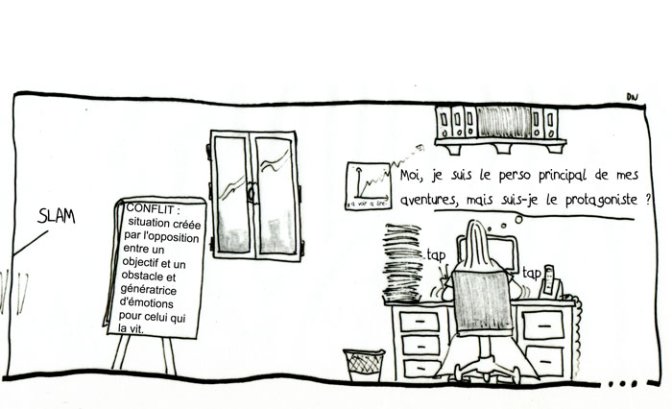 DW
Moi, je suis le perso principal de mes
aventures, mais suis-je le protagoniste ?
SLAM
CONFLIT :
situation créée
par l'opposition
entre un
objectif et un
obstacle et
génératrice
d'émotions
pour celui qui
la vit.
tap
tap